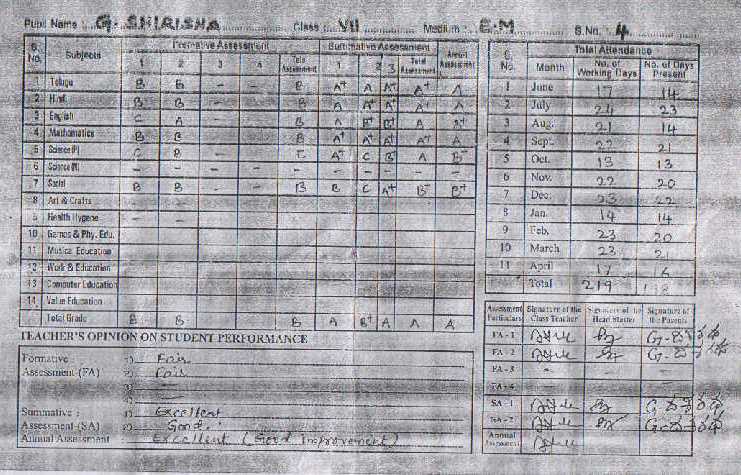 Pupil Name : G. SHIRISHA Class : VII Medium : E.M S.No. 4
S. No. Subjects Formative Assessment Summative Assessment Annual Assessment
1 2 3 4 Total Assessment 1 2 3 Total Assessment
1 Telugu B B - - B A+ A A+ A+ A
2 Hindi B B - - B A A+ A+ A A
3 English C A - - B A B+ B+ A B+
4 Mathematics B B - - B A+ A A+ A+ A
5 Science(P) C B - - C A+ C B+ A B+
6 Science(B) - - - - - - - - - -
7 Social B B - - B B C A+ B+ B+
8 Art & Crafts
9 Health Hygene
10 Games & Phy. Edu.
11 Musical Education
12 Work & Education
13 Computer Education
14 Value Education
Total Grade B B B A B+ A A A
TEACHER'S OPINION ON STUDENT PERFORMANCE
Formative 1) Fair
Assessment (FA) 2) Fair
Summative : 1) Excellent
Assessment (SA) 2) Good
Annual Assessment : Excellent (Good Improvement)
Total Attendance
S. No. Month No. of Working Days No. of Days Present
1 June 17 14
2 July 24 23
3 Aug. 21 14
4 Sept. 22 21
5 Oct. 15 13
6 Nov. 22 20
7 Dec. 23 22
8 Jan. 14 14
9 Feb. 23 20
10 March 23 21
11 April 17 16
Total 219
Assessment Particulars Signature of the Class Teacher Signature of the Head Master Signature of the Parents
FA - 1
FA - 2
FA - 3 - -
FA - 4 - -
SA - 1
SA - 2
Annual Assessment